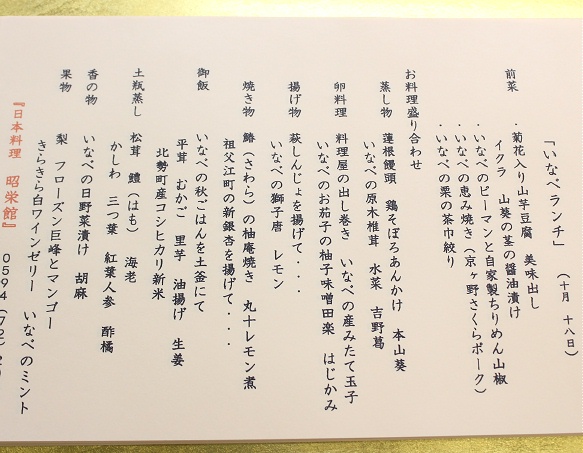 「いなべランチ」　（十月　十八日）
前菜　・菊花入り山芋豆腐　美味出し
イクラ　山葵の茎の醤油漬け
・いなべのピーマンと自家製ちりめん山椒
・いなべの恵み焼き（京ヶ野さくらポーク）
・いなべの栗の茶巾絞り
お料理盛り合わせ
蒸し物　蓮根饅頭　鶏そぼろあんかけ　本山葵
いなべの原木椎茸　水菜　吉野葛
卵料理　料理屋の出し巻き　いなべの産みたて玉子
いなべのお茄子の柚子味噌田楽　はじかみ
揚げ物　萩しんじょを揚げて・・・
いなべの獅子唐　レモン
焼き物　鰆（さわら）の柚庵焼き　丸十レモン煮
祖父江町の新銀杏を揚げて・・・
御飯　いなべの秋ごはんを土釜にて
平茸　むかご　里芋　油揚げ　生姜
北勢町産コシヒカリ新米
土瓶蒸し　松茸　鱧（はも）　海老
かしわ　三つ葉　紅葉人参　酢橘
香の物　いなべの日野菜漬け　胡麻
果物　梨　フローズン巨峰とマンゴー
きらきら白ワインゼリー　いなべのミント
『日本料理　昭栄館』　０５９４（７２）２